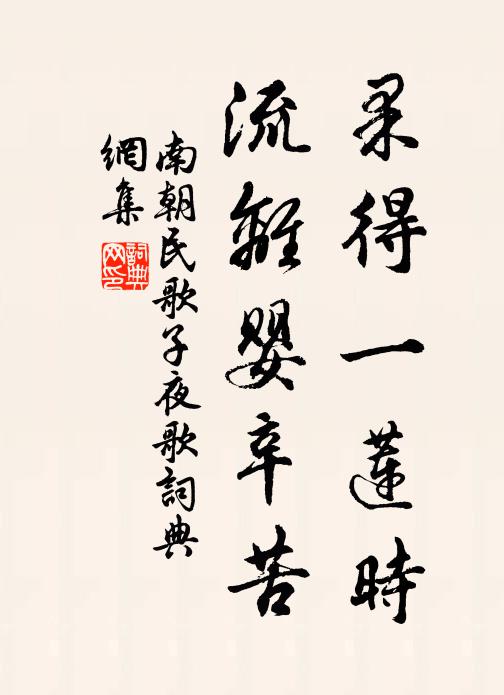 果得一蓮時
流離嬰辛苦
南朝民歌子夜歌詞典
網集
詞典
网印